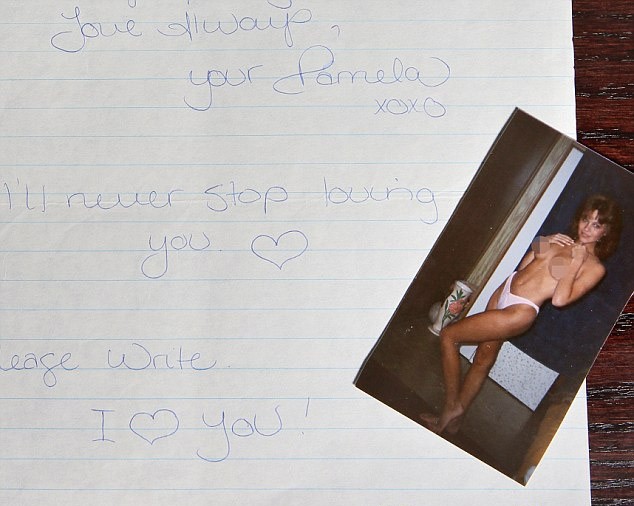 Love Always,
your Pamela
xoxo
I'll never stop loving
you. ♡
lease Write.
I ♡ you!